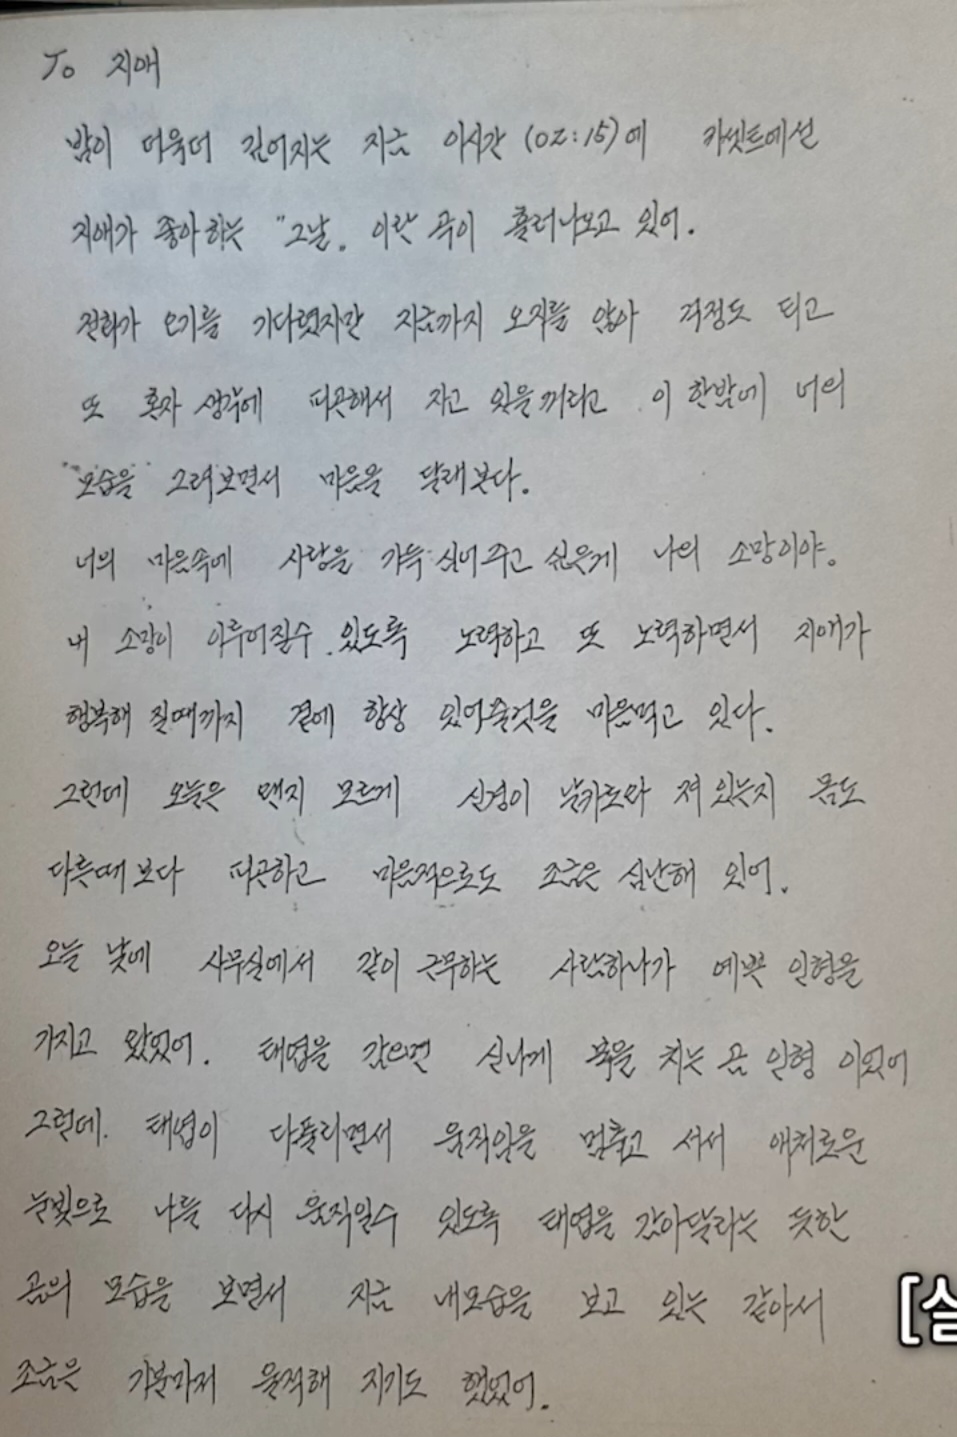 To 지애
밤이 더욱더 깊어지는 지금 이시간 (02:15)에 카셋트에선
지애가 좋아하는 "그날. 이란" 곡이 흘러나오고 있어.
전화가 오기를 기다렸지만 지금까지 오지를 않아 걱정도 되고
또 혼자 생각에 피곤해서 자고 있을꺼라고 이 한밤에 너의
모습을 그려보면서 마음을 달래본다.
너의 마음속에 사랑을 가득 심어주고 싶은게 나의 소망이야.
내 소망이 이루어질수 있도록 노력하고 또 노력하면서 지애가
행복해 질때까지 곁에 항상 있어줄것을 마음먹고 있다.
그런데 오늘은 왠지 모르게 신경이 날카로와 져 있는지 몸도
다른때 보다 피곤하고 마음적으로도 조금은 심난해 있어.
오늘 낮에 사무실에서 같이 근무하는 사람하나가 예쁜 인형을
가지고 왔었어. 태엽을 감으면 신나게 북을 치는 곰 인형 이었어
그런데. 태엽이 다풀리면서 움직임을 멈추고 서서 애처로운
눈빛으로 나를 다시 움직일수 있도록 태엽을 감아달라는 듯한
곰의 모습을 보면서 지금 내모습을 보고 있는 같아서
조금은 기분마저 울적해 지기도 했었어.
[실